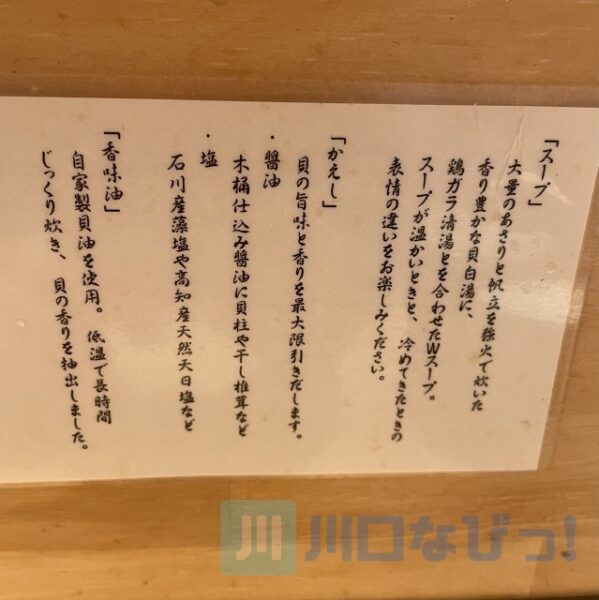 「スープ」
大量のあさりと帆立を強火で炊いた
香り豊かな貝白湯に、
鶏ガラ清湯とを合わせたWスープ。
スープが温かいときと、冷めてきたときの
表情の違いをお楽しみください。
「かえし」
貝の旨味と香りを最大限引きだします。
・醤油
木桶仕込み醤油に貝柱や干し椎茸など
・塩
石川産藻塩や高知産天然天日塩など
「香味油」
自家製貝油を使用。低温で長時間
じっくり炊き、貝の香りを抽出しました。
川 川口なびっ!